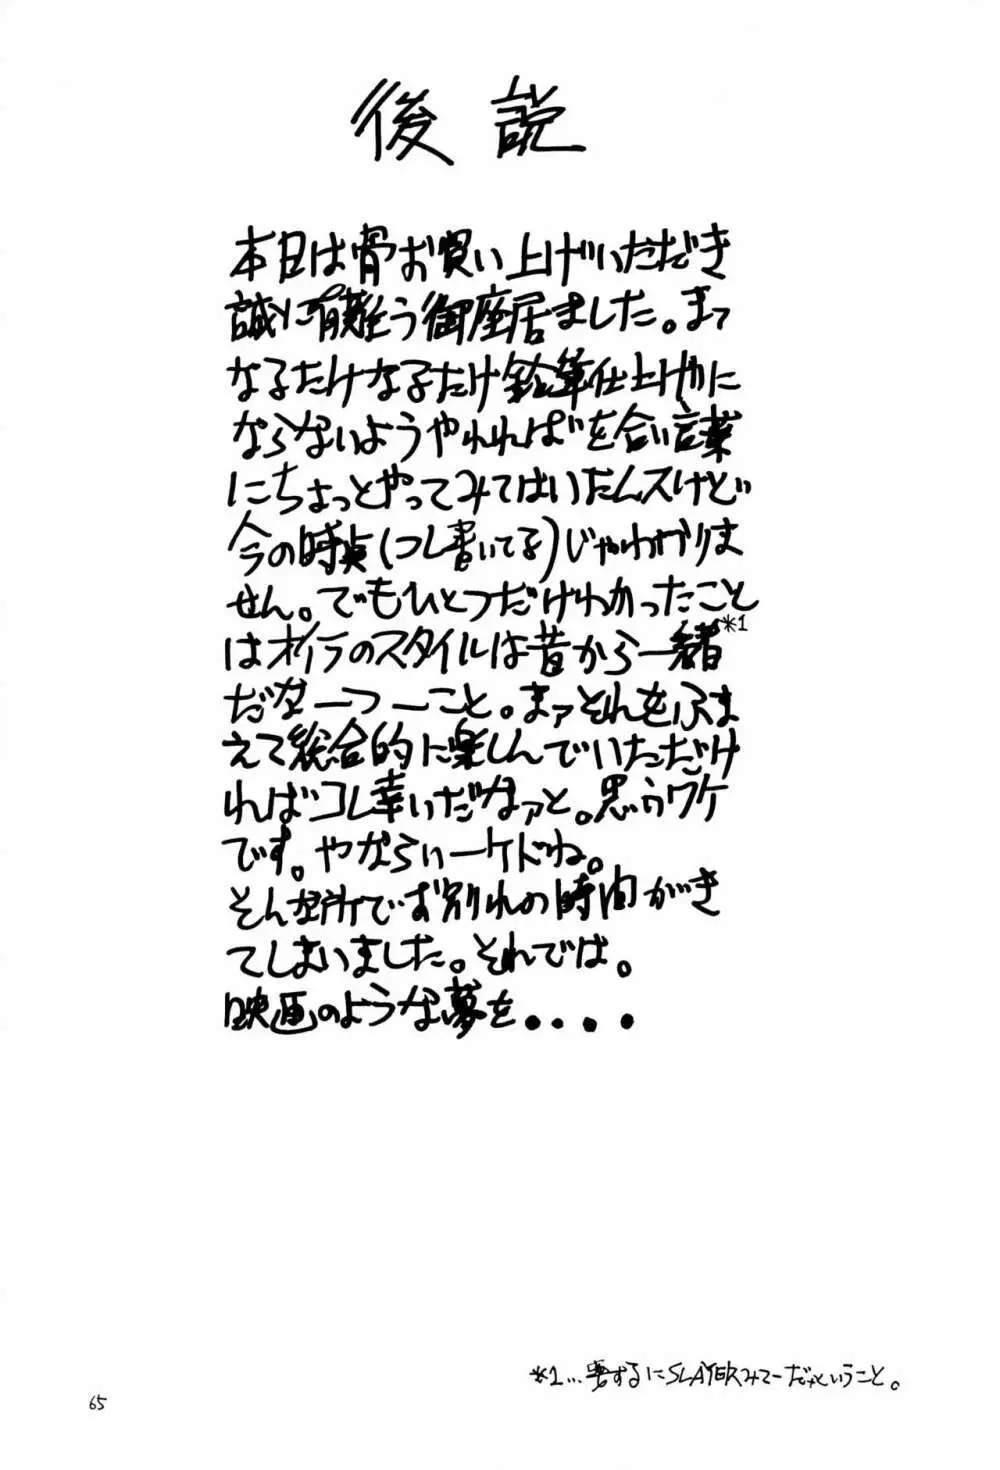 後説
本日は骨お買い上げいただき
誠に有難う御座居ました。まって
なるたけなるたけ鉛筆仕上げやに
ならないようやれればを合い言葉
にちょっとやってみてはいたんスけど
今の時点(つし書いてる)じゃわかりま
せん。でもひとつだけわかったこと
はオイラのスタイルは昔から一緒*1
だなーつーこと。まァそれをふま
えて総合的に楽しんでいただけ
ればコレ幸いだなァと。思うワケ
です。やならいーケドね。
そんな所でお別れの時間がき
てしまいました。それでは。
映画のような夢を....
*1...要するにSLAYERみてーだナということ。
65